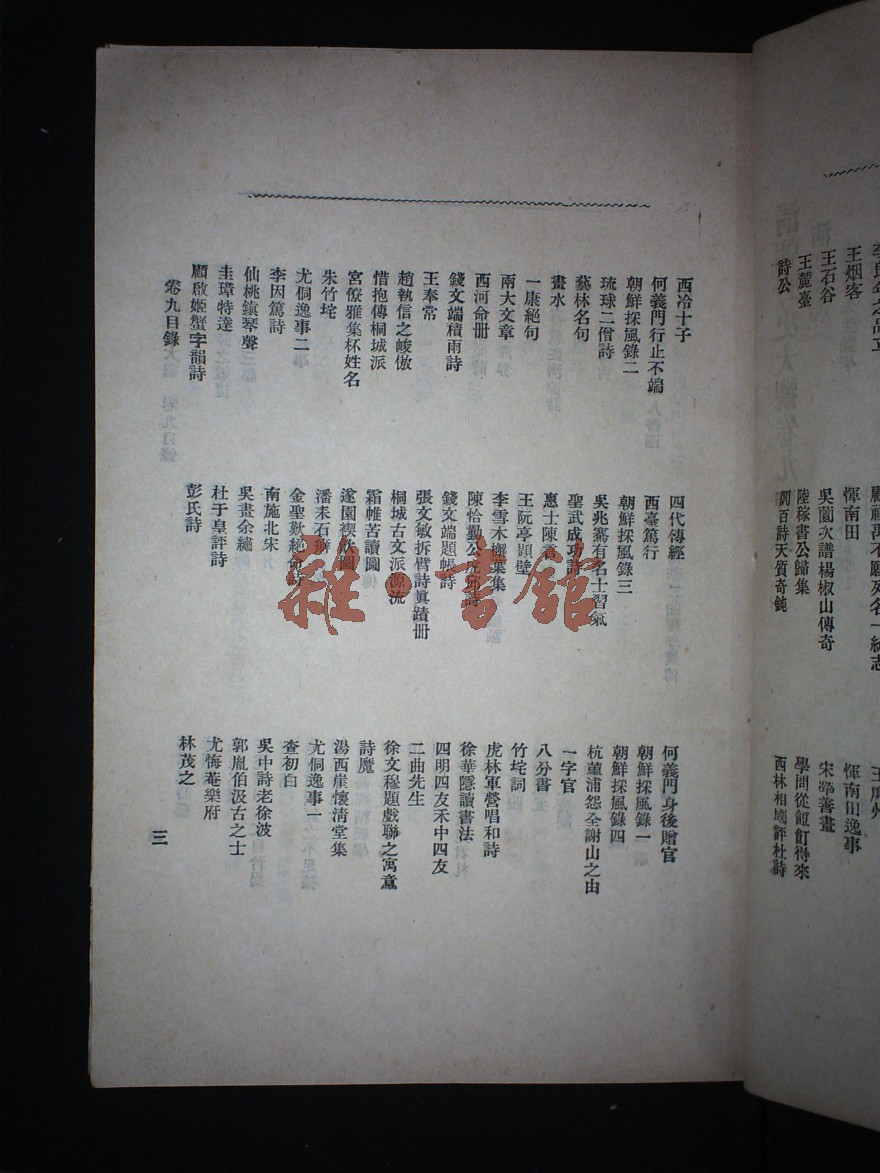 王烟客
惲南田
惲南田逸事
王石谷
吳薗次譜楊椒山傳奇
宋犖善畫
王麓臺
陸稼書公歸集
學問從飣餖得來
詩公
閻百詩天質奇鈍
西林相國評杜詩
西冷十子
四代傳經
何義門身後贈官
何義門行止不端
西臺篤行
朝鮮採風錄一
朝鮮採風錄二
朝鮮採風錄三
朝鮮採風錄四
琉球二僧詩
吳兆騫有名士習氣
杭菫浦怨全謝山之由
藝林名句
聖武成功詩
一字官
畫水
惠士陳言
八分書
一康絕句
王阮亭題壁
竹垞詞
兩大文章
李雪木槲葉集
虎林軍營唱和詩
西河命册
陳恪勤公虎邱詩
徐華隱讀書法
錢文端積雨詩
錢文端題帳詩
四明四友禾中四友
王奉常
張文敏拆臂詩眞蹟册
二曲先生
趙執信之峻傲
桐城古文派源流
徐文穆題戲聯之寓意
惜抱傳桐城派
霜帷苦讀圖
詩魔
宮僚雅集杯姓名
遂園禊飲圖
湯西崖懷清堂集
朱竹垞
潘耒石癖
尤侗逸事一
尤侗逸事二
金聖歎絕命詩
查初白
李因篤詩
南施北宋
吳中詩老徐波
仙桃鎮琴聲
吳畫余繡
郭胤伯汲古之士
圭璋特達
杜于皇評詩
尤悔菴樂府
顧啟姬蟹字韻詩
彭氏詩
林茂之
卷九目錄
三
雜·書館